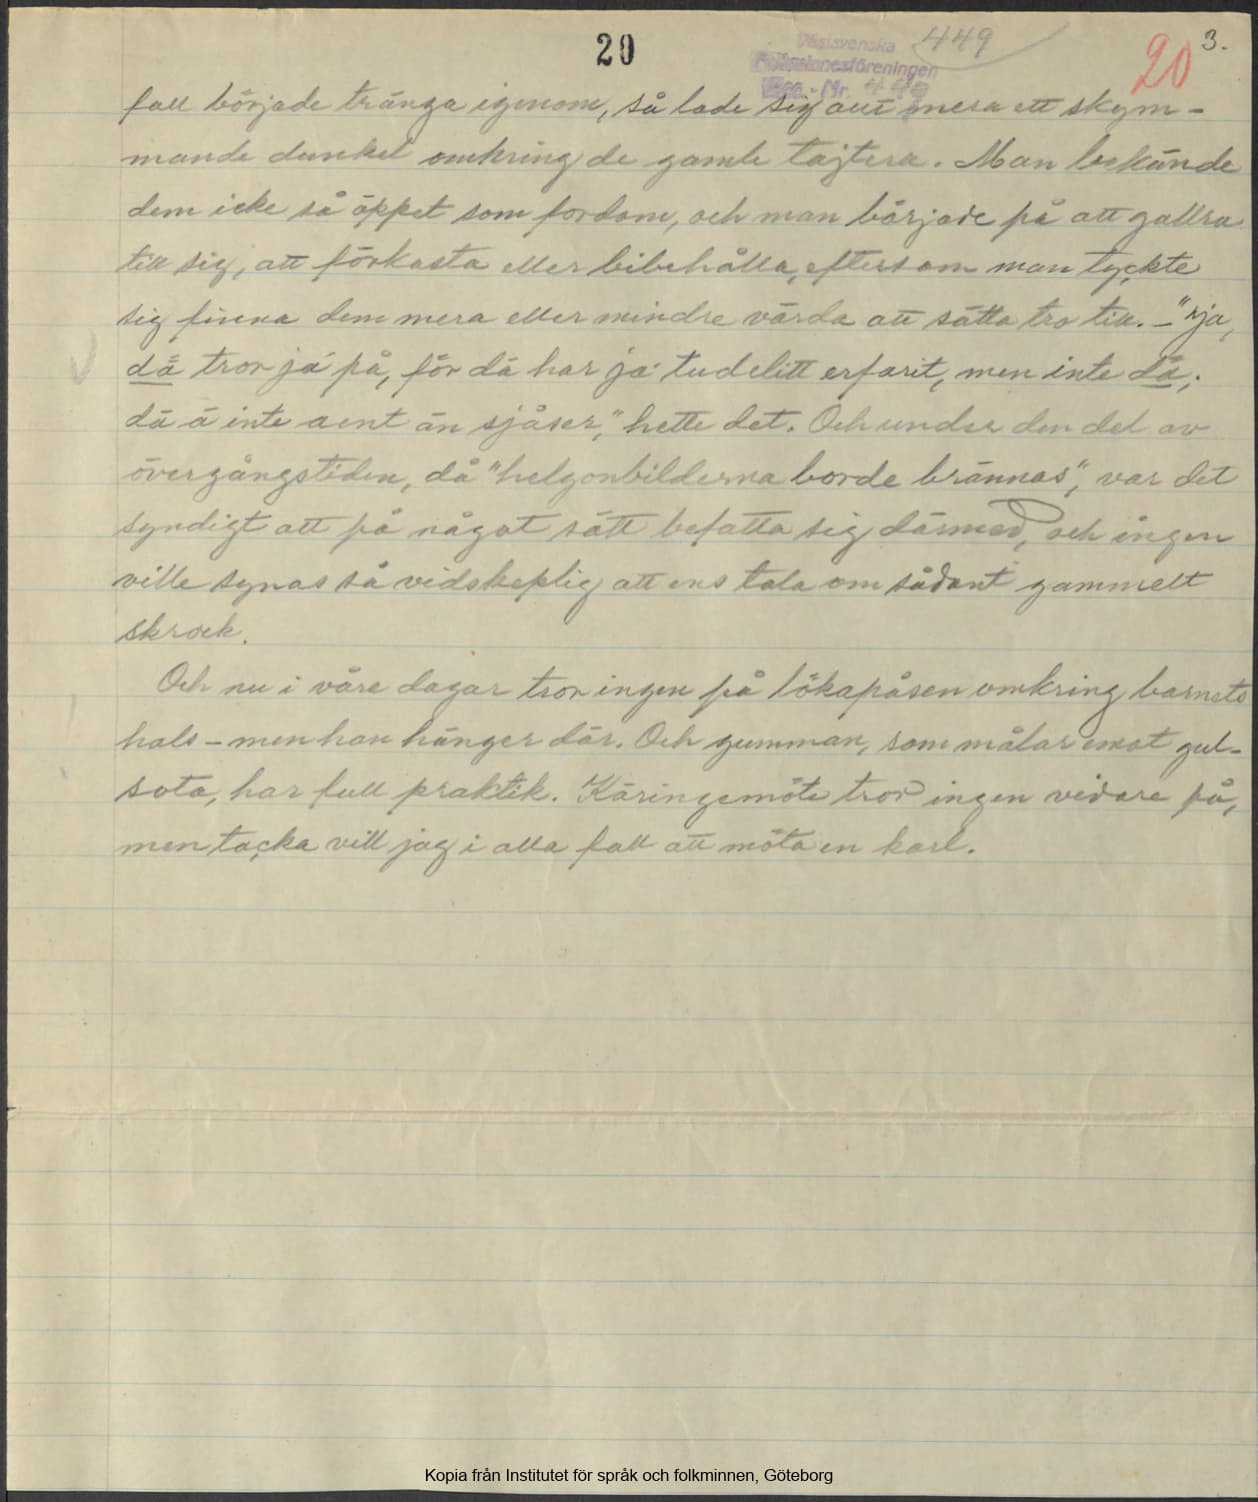 20
449
20
3.
Västsvenska
Folkminnesföreningen
Acc.-Nr. 449
fall började tränga igenom, så lade sig allt mera ett skym-
mande dunkel omkring de gamle tajtera. Man bekände
dem icke så öppet som fordom, och man började på att gallra
till sig, att förkasta eller bibehålla, eftersom man tyckte
sig finna dem mera eller mindre värda att sätta tro till. – "Ja,
dä tror ja' på, för dä har ja' tudelitt erfarit, men inte dä;
dä ä inte aent än sjåser," hette det. Och under den del av
övergångstiden, då "helgonbilderna borde brännas", var det
syndigt att på något sätt befatta sig därmed, och ingen
ville synas så vidskeplig att ens tala om sådant gammelt
skrock.
Och nu i våre dagar tror ingen på lökapåsen omkring barnets
hals – men han hänger där. Och gumman, som målar emot gul-
sota, har full praktik. Käringemöte tror ingen vidare på,
men tacka vill jag i alla fall att möta en karl.
Kopia från Institutet för språk och folkminnen, Göteborg